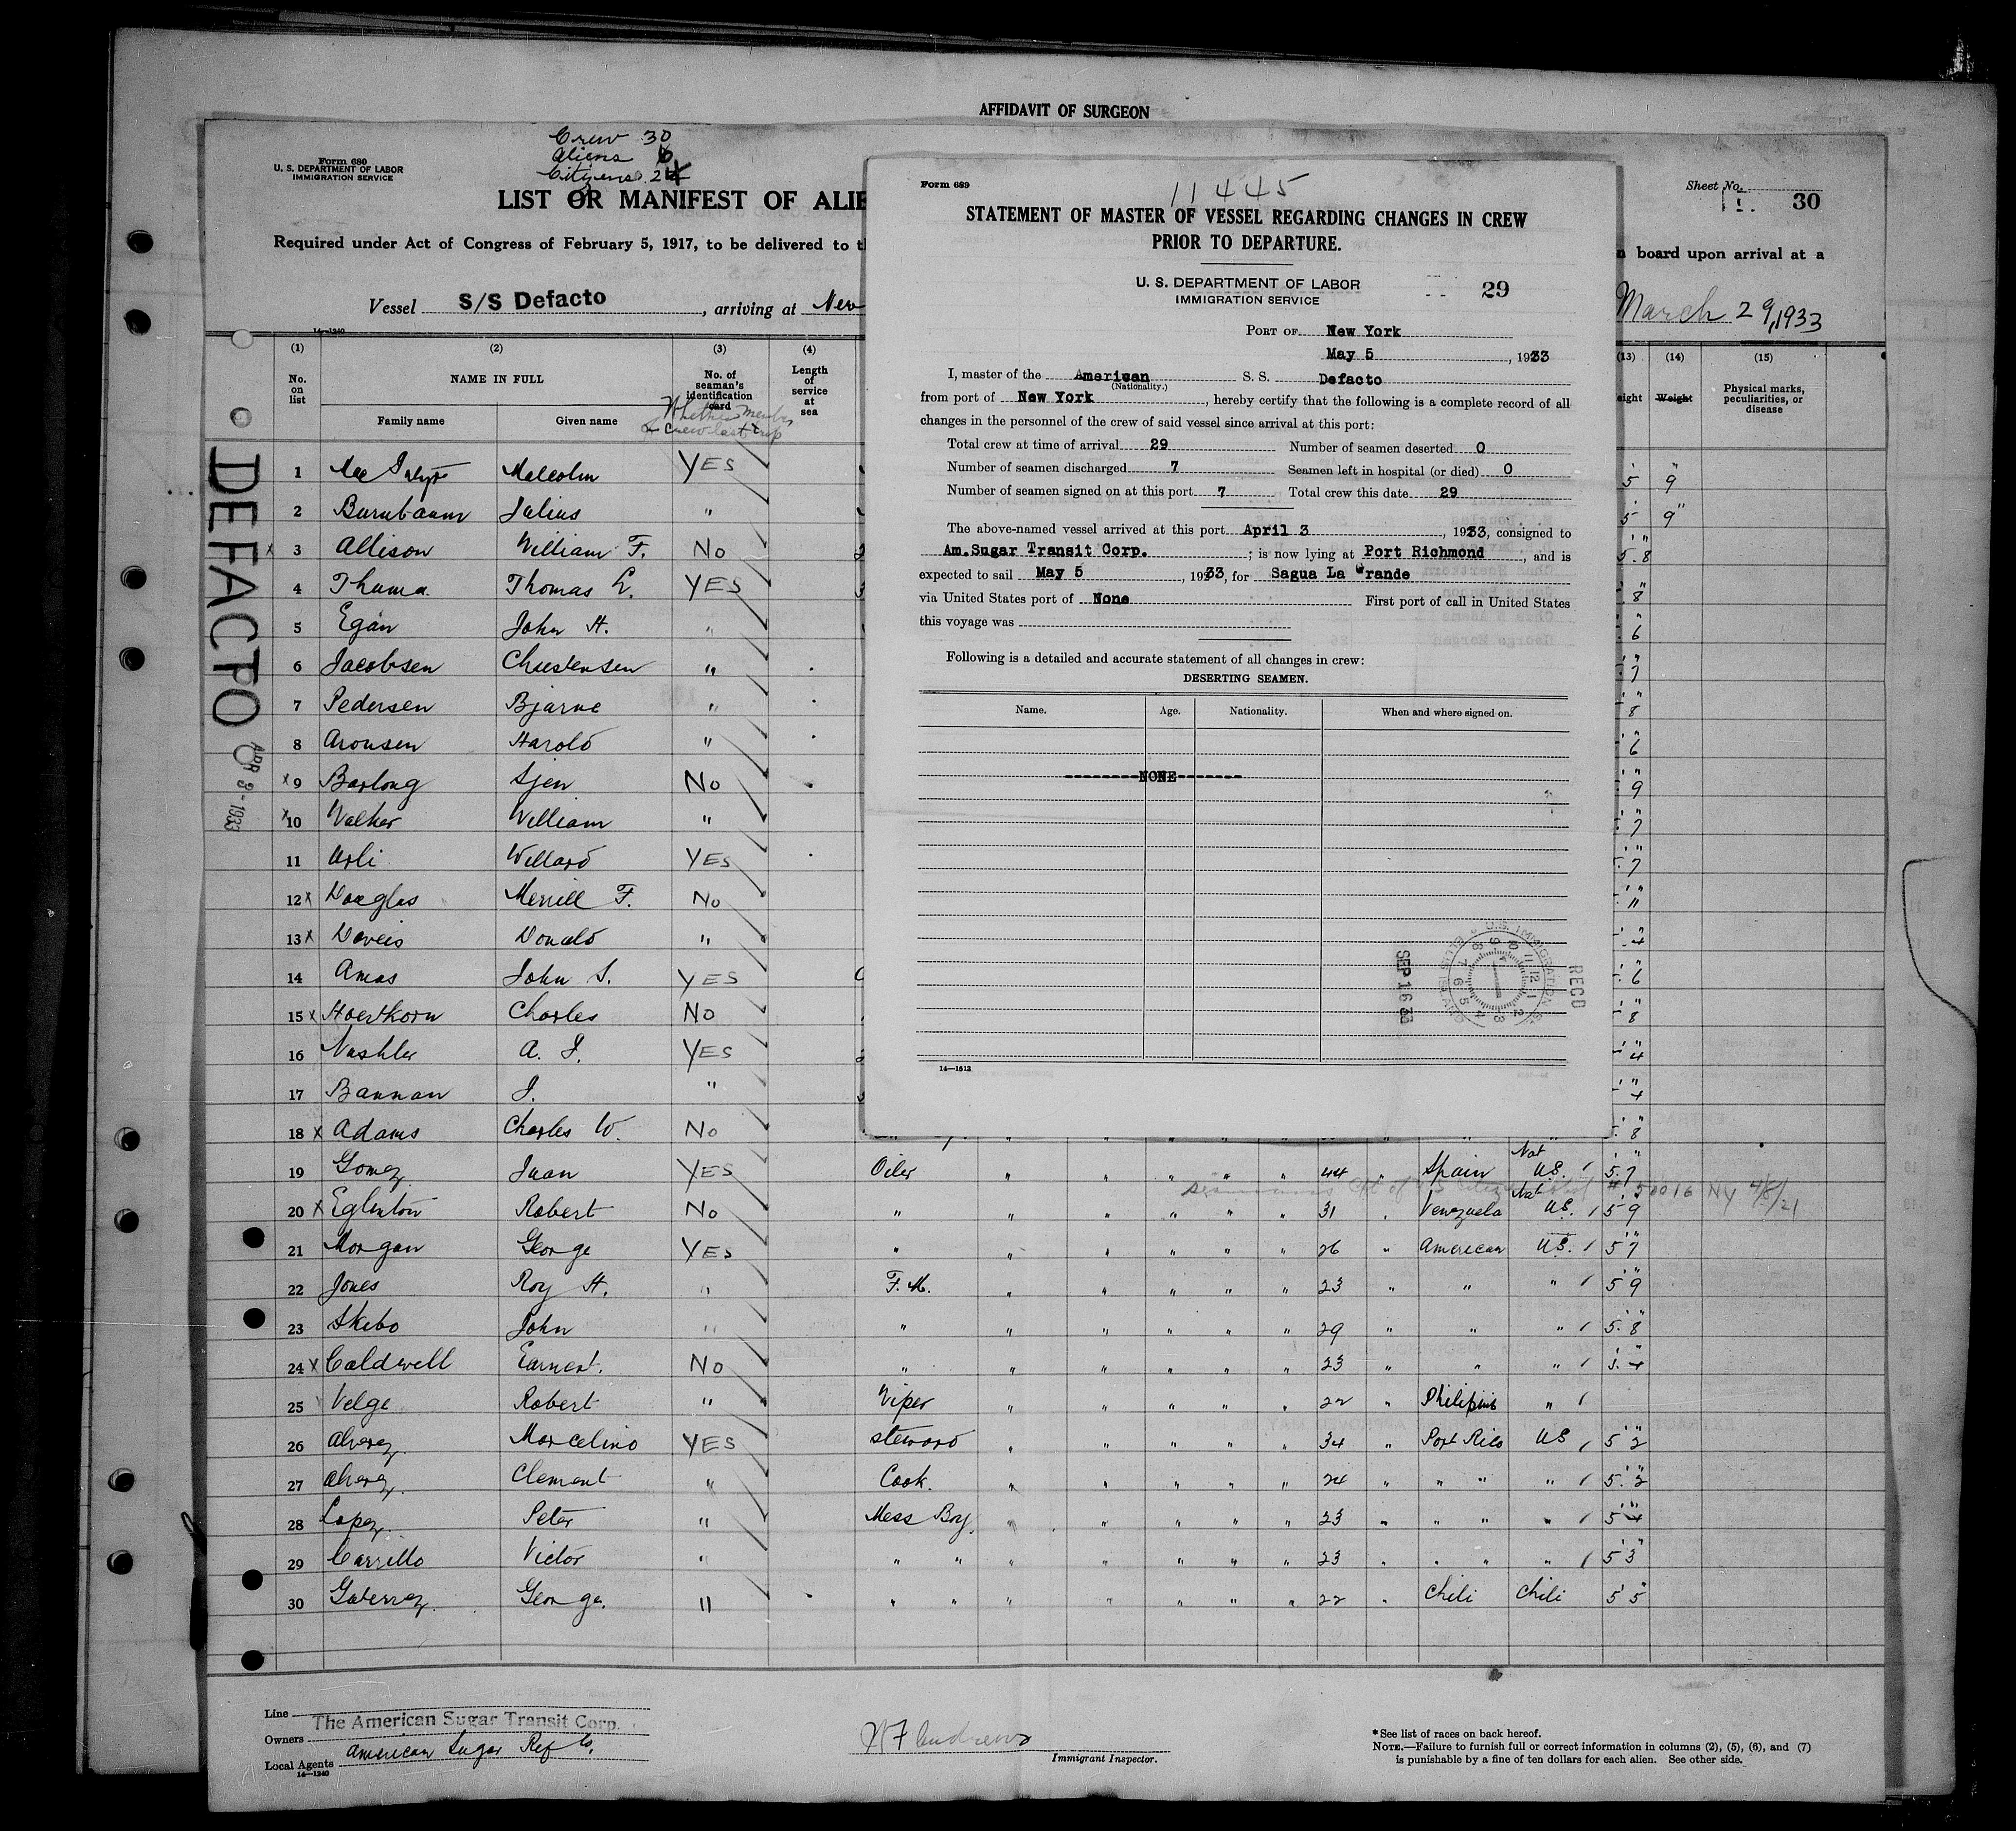 AFFIDAVIT OF SURGEON
Crew 30
Aliens 6
Citizens 24
Form 680
U. S. DEPARTMENT OF LABOR
IMMIGRATION SERVICE
Sheet No. 1. 30
LIST OR MANIFEST OF ALIE
Required under Act of Congress of February 5, 1917, to be delivered to t
n board upon arrival at a
Vessel S/S Defacto, arriving at New
March 29, 1933
14—1240
(1) (2) (3) (4) (13) (14) (15)
No. on list
NAME IN FULL
Family name Given name
No. of seaman's identification card
Whether member of crew last trip
Length of service at sea
eight Weight
Physical marks, peculiarities, or disease
DEFACTO
APR 3 - 1933
1 Malcolm YES 5 9
2 Julius " 5 9
x 3 Allison William F. No 5.8
4 Thuma Thomas L. YES 8
5 Egan John H. " 6
6 Jacobsen Christensen " 7
7 Pedersen Bjarne " 8
8 Aronsen Harold " 6
x 9 Barlong Sjen No 9
x 10 Walker William " 7
11 Urli Willard YES 7
12 x Douglas Merrill F. No 11
13 x Daveis Donald " 4
14 Amas John S. YES 6
15 x Hoertkorn Charles No 8
16 A. J. YES 4
17 Bannan J. " 4
18 x Adams Charles W. No 8
19 Gomez Juan YES Oiler " " " " " 44 " Spain Nat U.S. 5.7
Seamans Cft of U.S. Citizenship # 50016 NY 4/8/21
20 x Eglinton Robert No " " " " " " 31 " Venezuela Nat U.S. 5 9
21 Morgan George YES " " " " " " 26 " American U.S. 5 7
22 Jones Roy H. " F. M. " " " " " 23 " " " 5 9
23 Skibo John " " " " " " " 29 " " " 5.8
24 x Caldwell Earnest. No " " " " " " 23 " " " 5.4
25 Velge Robert " Wiper " " " " " 22 " Philipins "
26 Alverez Marcelino YES steward " " " " " 34 " Port Rico US 5 2
27 Alverez Clement " Cook. " " " " " 24 " " " " 5.2
28 Lopez Peter " Mess Boy " " " " " 23 " " " " 5 4
29 Carrillo Victor " " " " " " " " 23 " " " " 5 3
30 George. " " " " " " " " 22 " Chili Chili 5 5
Form 689
11445
STATEMENT OF MASTER OF VESSEL REGARDING CHANGES IN CREW
PRIOR TO DEPARTURE.
U. S. DEPARTMENT OF LABOR
IMMIGRATION SERVICE
29
PORT OF New York
May 5, 1933
I, master of the American S. S. Defacto
(Nationality.)
from port of New York, hereby certify that the following is a complete record of all
changes in the personnel of the crew of said vessel since arrival at this port:
Total crew at time of arrival 29 Number of seamen deserted 0
Number of seamen discharged 7 Seamen left in hospital (or died) 0
Number of seamen signed on at this port 7 Total crew this date 29
The above-named vessel arrived at this port April 3, 1933, consigned to
Am.Sugar Transit Corp. ; is now lying at Port Richmond, and is
expected to sail May 5, 1933, for Sagua La Grande
via United States port of None First port of call in United States
this voyage was
Following is a detailed and accurate statement of all changes in crew:
DESERTING SEAMEN.
Name. Age. Nationality. When and where signed on.
--------NONE-------
SEP 16 33
U.S. IMMIGRATION
ELLIS ISLAND
RECD
14—1613
Line
The American Sugar Transit Corp.
Owners
American Sugar Ref Co.
Local Agents
14—1240
W F Andrews
Immigrant Inspector.
*See list of races on back hereof.
NOTE.—Failure to furnish full or correct information in columns (2), (5), (6), and (7)
is punishable by a fine of ten dollars for each alien. See other side.